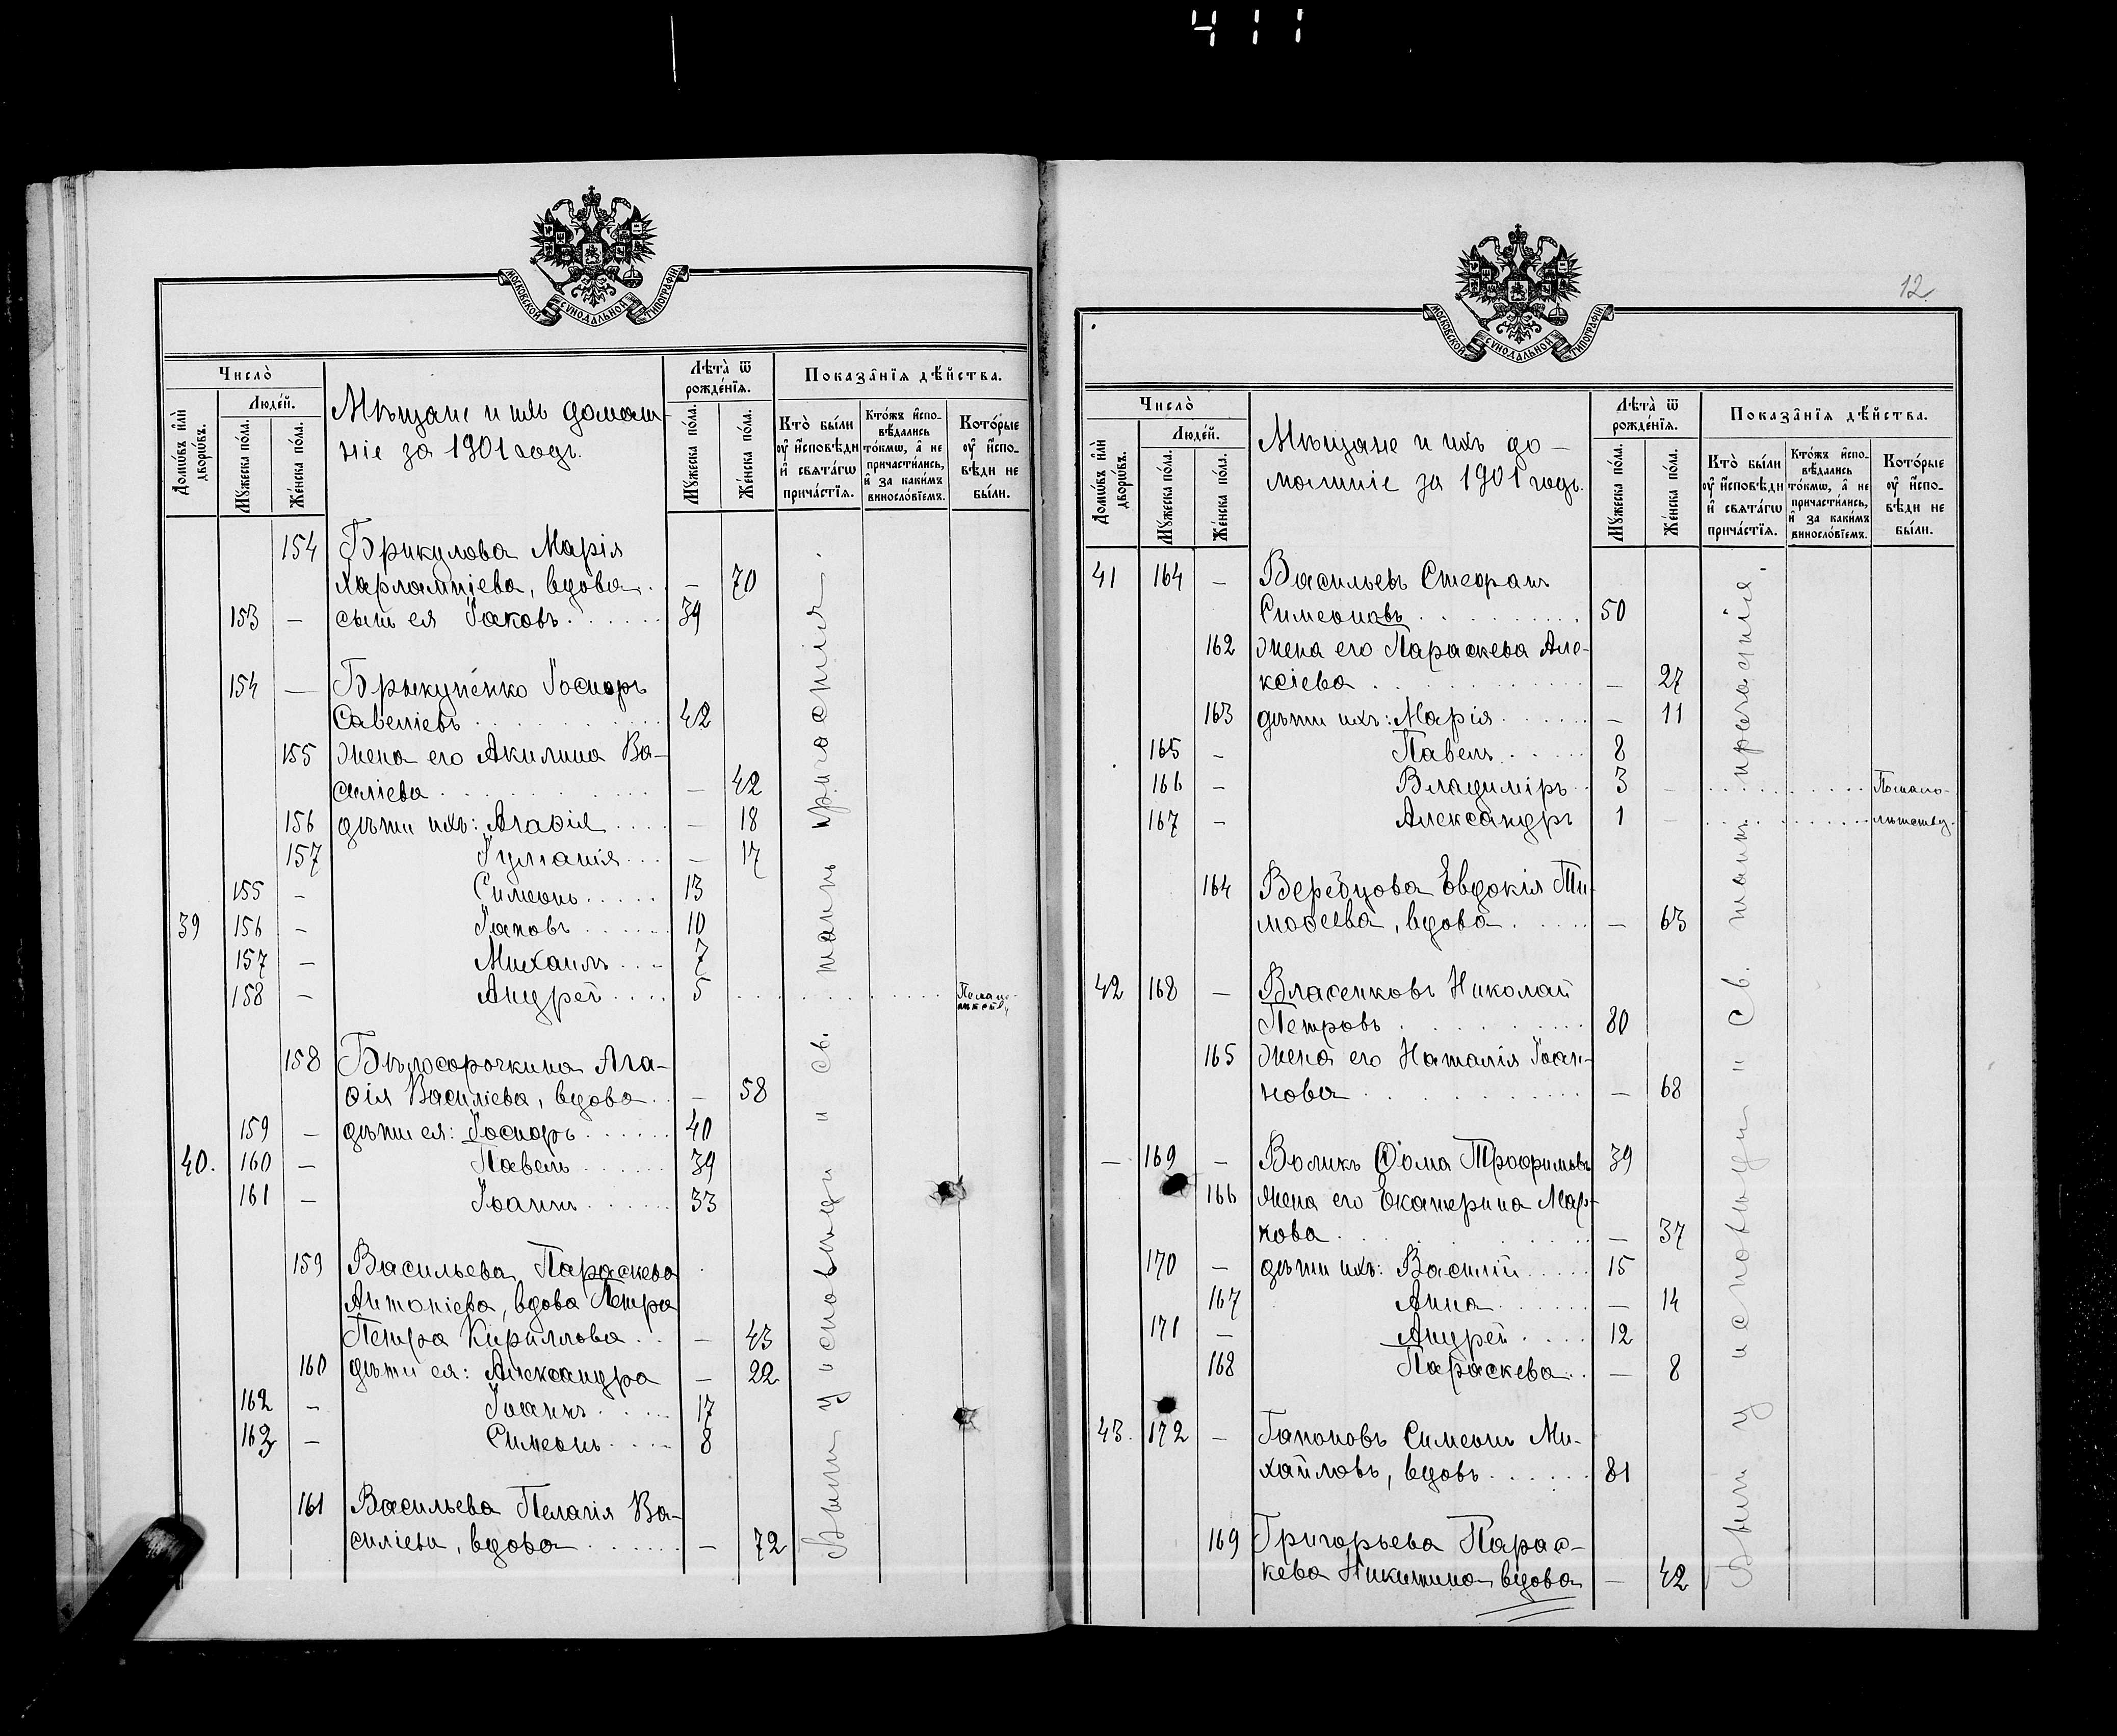 411
МОСКОВСКОЙ СУНОДАЛЬНОЙ ТИПОГРАФІИ
Число̀
Домѡ́въ и҆лѝ дворѡ́въ.
Люде́й.
Мꙋ́жеска по́ла.
Же́нска по́ла.
Мѣщане и ихъ домаш-
ніе за 1901 годъ.
Лѣ́та ѿ рожде́нїя.
Мꙋ́жеска по́ла.
Же́нска по́ла.
Показа̑нїя дѣ́йства.
Кто̀ бы́ли ᲂу҆ и҆сповѣ́ди и҆ свята́гѡ прича́стїя.
Кто́жъ и҆спо-вѣ́дались то́кмѡ, а҆ не причасти́лись, и҆ за каки́мъ винослові́емъ.
Кото́рые ᲂу҆ и҆спо-вѣ́ди не бы́ли.
154 Брикулова Марія
Харлампіева, вдова . – 70
153 – сынъ ея Іаковъ . . . . . . 39
154 — Брыкуненко Іосифъ
Савеліевъ . . . . . . . . 42
155 жена его Акилина Ва-
силіева . . . . . . . . – 42
156 дѣти ихъ: Агаѳія . . . . – 18
157 Іуліанія . . . – 17
155 – Симеонъ . . . . . 13
39 156 – Іаковъ . . . . . . 10
157 – Михаилъ . . . 7
158 – Андрей . . . . 5 . . . . . . . . . . . . По мало-
лѣтству
158 Бѣлосорочкина Ага-
ѳія Василіева, вдова . . – 58
159 – дѣти ея: Іосифъ . . . . . . 40
40. 160 – Павелъ . . . . . . 39
161 – Іоаннъ . . . . . . 33
159 Васильева Параскева
Антоніева, вдова Петра
Петра Кириллова . . – 43
160 дѣти ея: Александра – 22
162 – Іоаннъ . . . . . 17
163 – Симеонъ . . . . 8
161 Васильева Пелагія Ва-
силіева, вдова . . . . . . . – 72
Были у исповѣди и св. таинъ причастія.
12
МОСКОВСКОЙ СУНОДАЛЬНОЙ ТИПОГРАФІИ
Число̀
Домѡ́въ и҆лѝ дворѡ́въ.
Люде́й.
Мꙋ́жеска по́ла.
Же́нска по́ла.
Мѣщане и ихъ до-
машніе за 1901 годъ.
Лѣ́та ѿ рожде́нїя.
Мꙋ́жеска по́ла.
Же́нска по́ла.
Показа̑нїя дѣ́йства.
Кто̀ бы́ли ᲂу҆ и҆сповѣ́ди и҆ свята́гѡ прича́стїя.
Кто́жъ и҆спо-вѣ́дались то́кмѡ, а҆ не причасти́лись, и҆ за каки́мъ винослові́емъ.
Кото́рые ᲂу҆ и҆спо-вѣ́ди не бы́ли.
41 164 – Васильевъ Стефанъ
Симеоновъ . . . . . . . . . . 50
162 жена его Параскева Але-
ксіева . . . . . . . . . . – 27
163 дѣти ихъ: Марія . . . . . . – 11
165 – Павелъ . . . . . 8
166 – Владиміръ . . 3 – . . . . . . . . . . По мало-
167 – Александръ 1 – . . . . . . . . . . лѣтству.
164 Веребцова Евдокія Ти-
моѳеева, вдова . . . . . – 63
42 168 – Власенковъ Николай
Петровъ . . . . . . . . 80
165 жена его Наталія Іоан-
нова . . . . . . . . . . – 68
– 169 – Воликъ Ѳома Трофимовъ 39
166 жена его Екатерина Мар-
кова . . . . . . . . . . – 37
170 – дѣти ихъ: Василій . . . . . 15
167 Анна . . . . . . – 14
171 – Андрей . . . . 12
168 Параскева . . – 8
43. 172 – Гапоновъ Симеонъ Ми-
хайловъ, вдовъ . . . . . . 81
169 Григорьева Парас-
кева Никитина вдова – 42
Были у исповѣди и св. таинъ причастія.